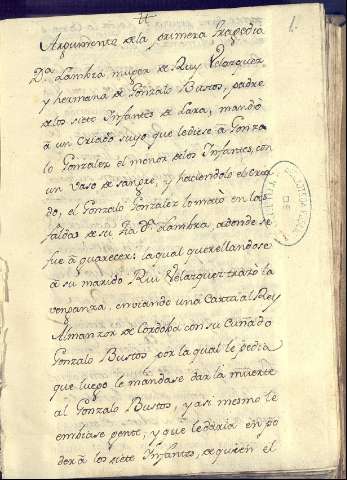 1.
Argumento de la primera tragedia
D.ª Lambra muger de Ruy Velazquez,
y hermana de Gonzalo Bustos, padre
de los siete Infantes de Lara, mandò
à un criado suyo que lediese à Gonza
lo Gonzalez el menor de los Infantes, con
un vaso de sangre, y haciendolo el cria
do, el Gonzalo Gonzalez lo matò en las
faldas de su tia D.ª Lambra, adonde se
fue à guarecer: la qual querellandose
à su marido Rui Velazquez trazò la
venganza, enviando una Carta al Rey
Almanzor de Cordoba con su Cuñado
Gonzalo Bustos por la qual le pedia
que luego le mandase dar la muerte
al Gonzalo Bustos, y asi mesmo le
embiase gente, y que le daria en po
der à los siete Infantes, de quien el